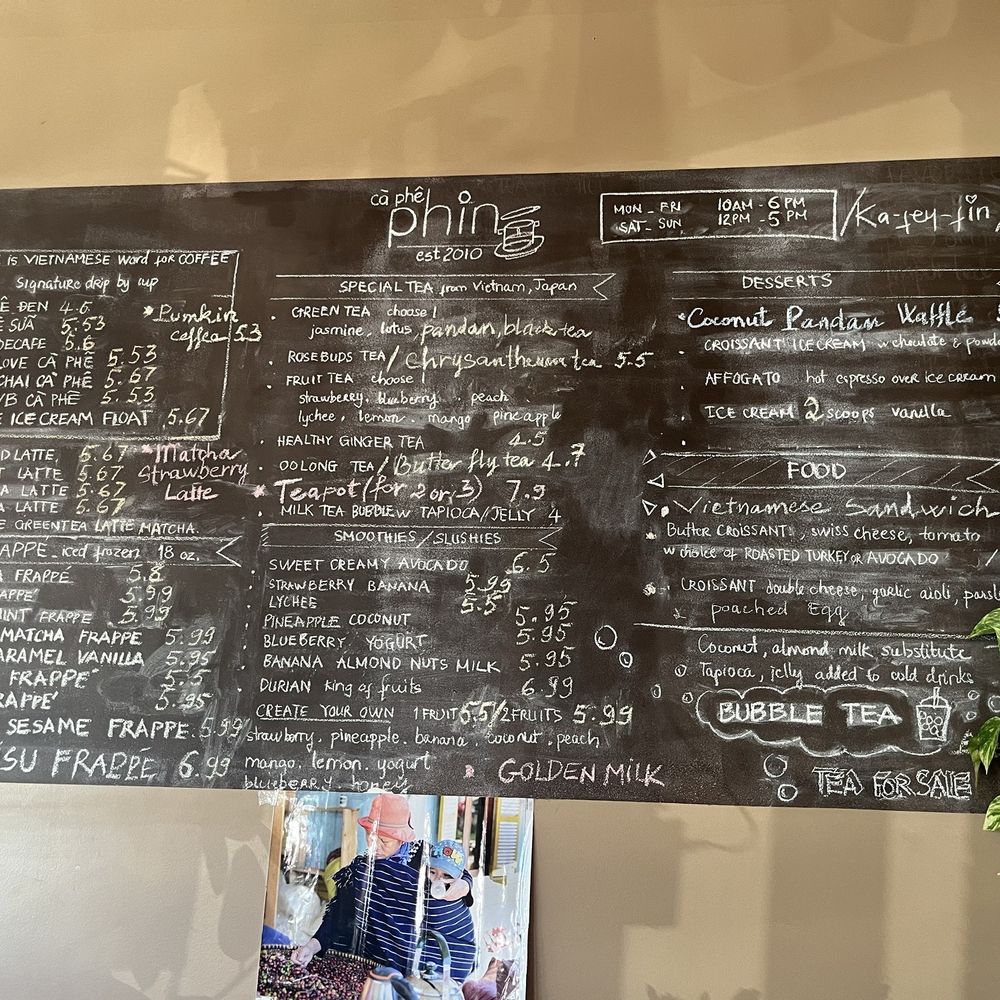 cà phê
phin
est 2010
MON - FRI 10AM - 6 PM
SAT - SUN 12PM - 5 PM
/Ka-fey-fin
IS VIETNAMESE Word for COFFEE
Signature drip by cup
ĐEN 4.5
SỮA 5.53
DECAFE 5.6
LOVE CÀ PHÊ 5.53
CHAI CÀ PHÊ 5.67
CÀ PHÊ 5.53
ICE CREAM FLOAT 5.67
*Pumkin
coffee 5.3
LATTE 5.67
LATTE 5.67
LATTE 5.67
LATTE 5.67
GREENTEA LATTE MATCHA.
*Matcha
Strawberry
Latte
iced frozen 18 oz.
FRAPPÉ 5.8
5.99
FRAPPE 5.99
MATCHA FRAPPE 5.99
CARAMEL VANILLA 5.95
FRAPPE 5.5
5.95
SESAME FRAPPE 5.99
FRAPPÉ 6.99
SPECIAL TEA from Vietnam, Japan
GREEN TEA choose 1
jasmine, lotus, pandan, black tea
ROSEBUDS TEA / Chrysanthemum tea 5.5
FRUIT TEA choose 1
strawberry, blueberry, peach
lychee, lemon, mango pineapple
HEALTHY GINGER TEA 4.5
OOLONG TEA / Butterfly tea 4.7
* Teapot (for 2 or 3) 7.9
MILK TEA BUBBLE w TAPIOCA/JELLY 4
SMOOTHIES / SLUSHIES
SWEET CREAMY AVOCADO 6.5
STRAWBERRY BANANA 5.99
LYCHEE 5.5
PINEAPPLE COCONUT 5.95
BLUEBERRY YOGURT 5.95
BANANA ALMOND NUTS MILK 5.95
DURIAN king of fruits 6.99
CREATE YOUR OWN 1 FRUIT 5.5 / 2 FRUITS 5.99
strawberry. pineapple. banana. coconut, peach
mango. lemon. yogurt
blueberry. honey
GOLDEN MILK
DESSERTS
Coconut Pandan Waffle
CROISSANT ICE CREAM w chocolate &
AFFOGATO hot espresso over ice cream
ICE CREAM 2 scoops vanilla
FOOD
Vietnamese Sandwich
Butter CROISSANT, swiss cheese, tomato
w choice of ROASTED TURKEY or AVOCADO
CROISSANT double cheese, garlic aioli,
poached Egg
Coconut, almond milk substitute
Tapioca, jelly added to cold drinks
BUBBLE TEA
TEA FOR SALE